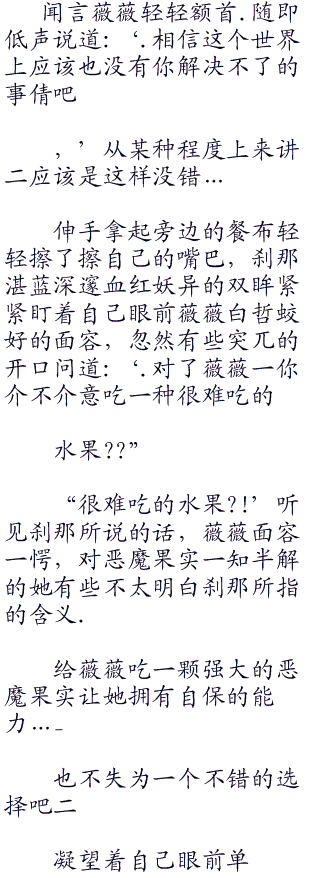 闻言薇薇轻轻额首.随即
低声说道:‘.相信这个世界
上应该也没有你解决不了的
事情吧
,’从某种程度上来讲
二应该是这样没错…
伸手拿起旁边的餐布轻
轻擦了擦自己的嘴巴,刹那
湛蓝深邃血红妖异的双眸紧
紧盯着自己眼前薇薇白哲蛟
好的面容,忽然有些突兀的
开口问道:‘.对了薇薇一你
介不介意吃一种很难吃的
水果??”
“很难吃的水果?!’听
见刹那所说的话,薇薇面容
一愕,对恶魔果实一知半解
的她有些不太明白刹那所指
的含义.
给薇薇吃一颗强大的恶
魔果实让她拥有自保的能
力…_
也不失为一个不错的选
择吧二
凝望着自己眼前单